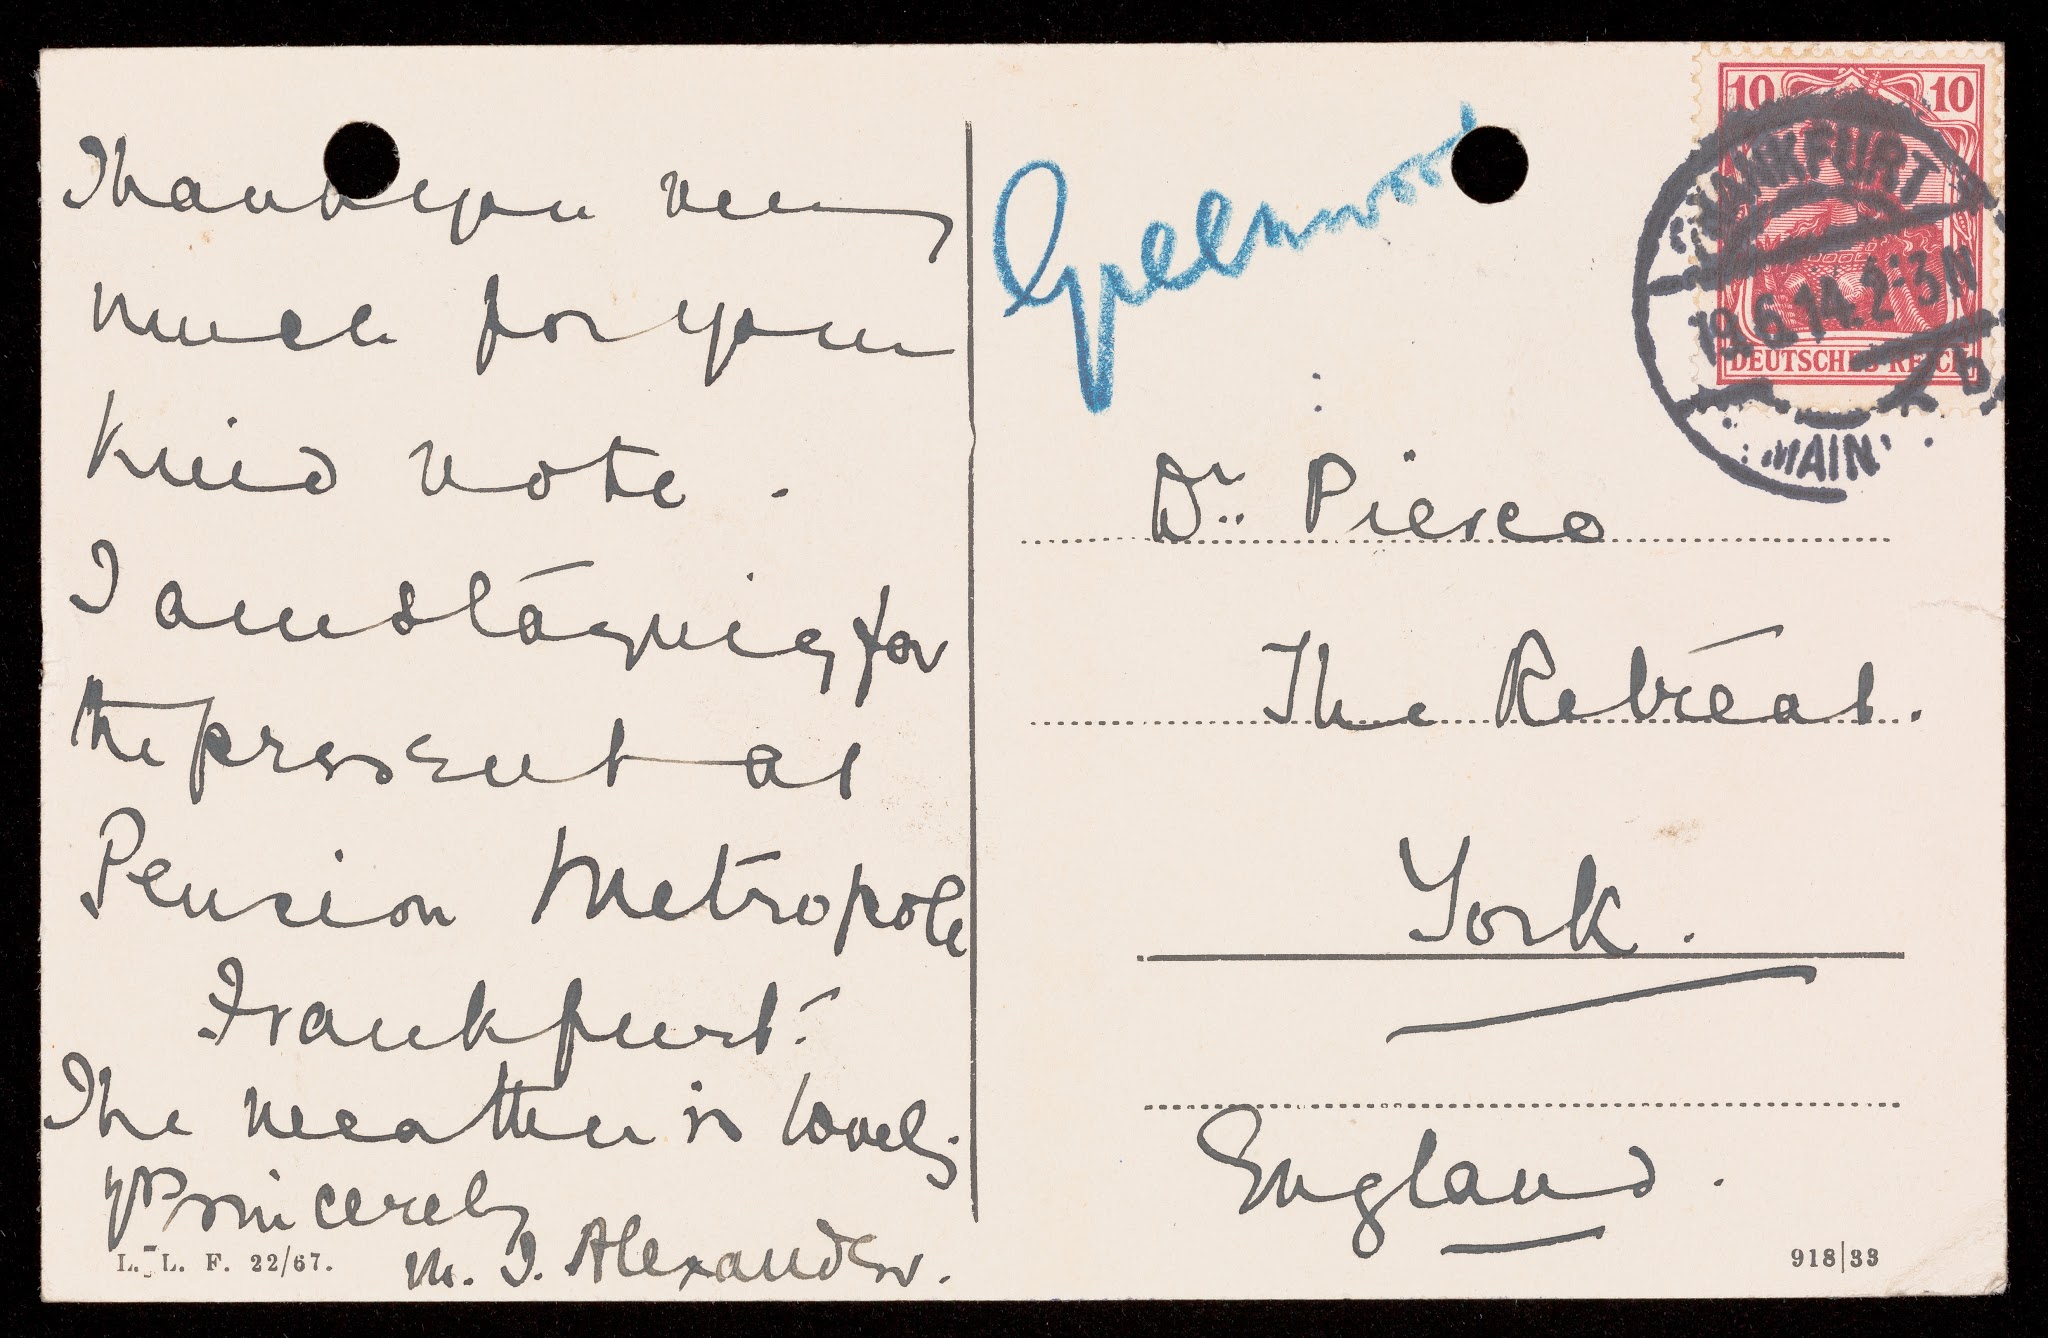 Thank you very
much for your
kind note.
I am staying for
the present at
Pension Metropole
Frankfurt.
The weather is lovely.
Yrs sincerely
M. I. Alexander.
L. L. F. 22/67.
Greenwood
10 10
DEUTSCHES REICH
FRANKFURT
19.6.14.2-3N
b
MAIN
Dr. Pierce
The Retreat.
York.
England.
918|33